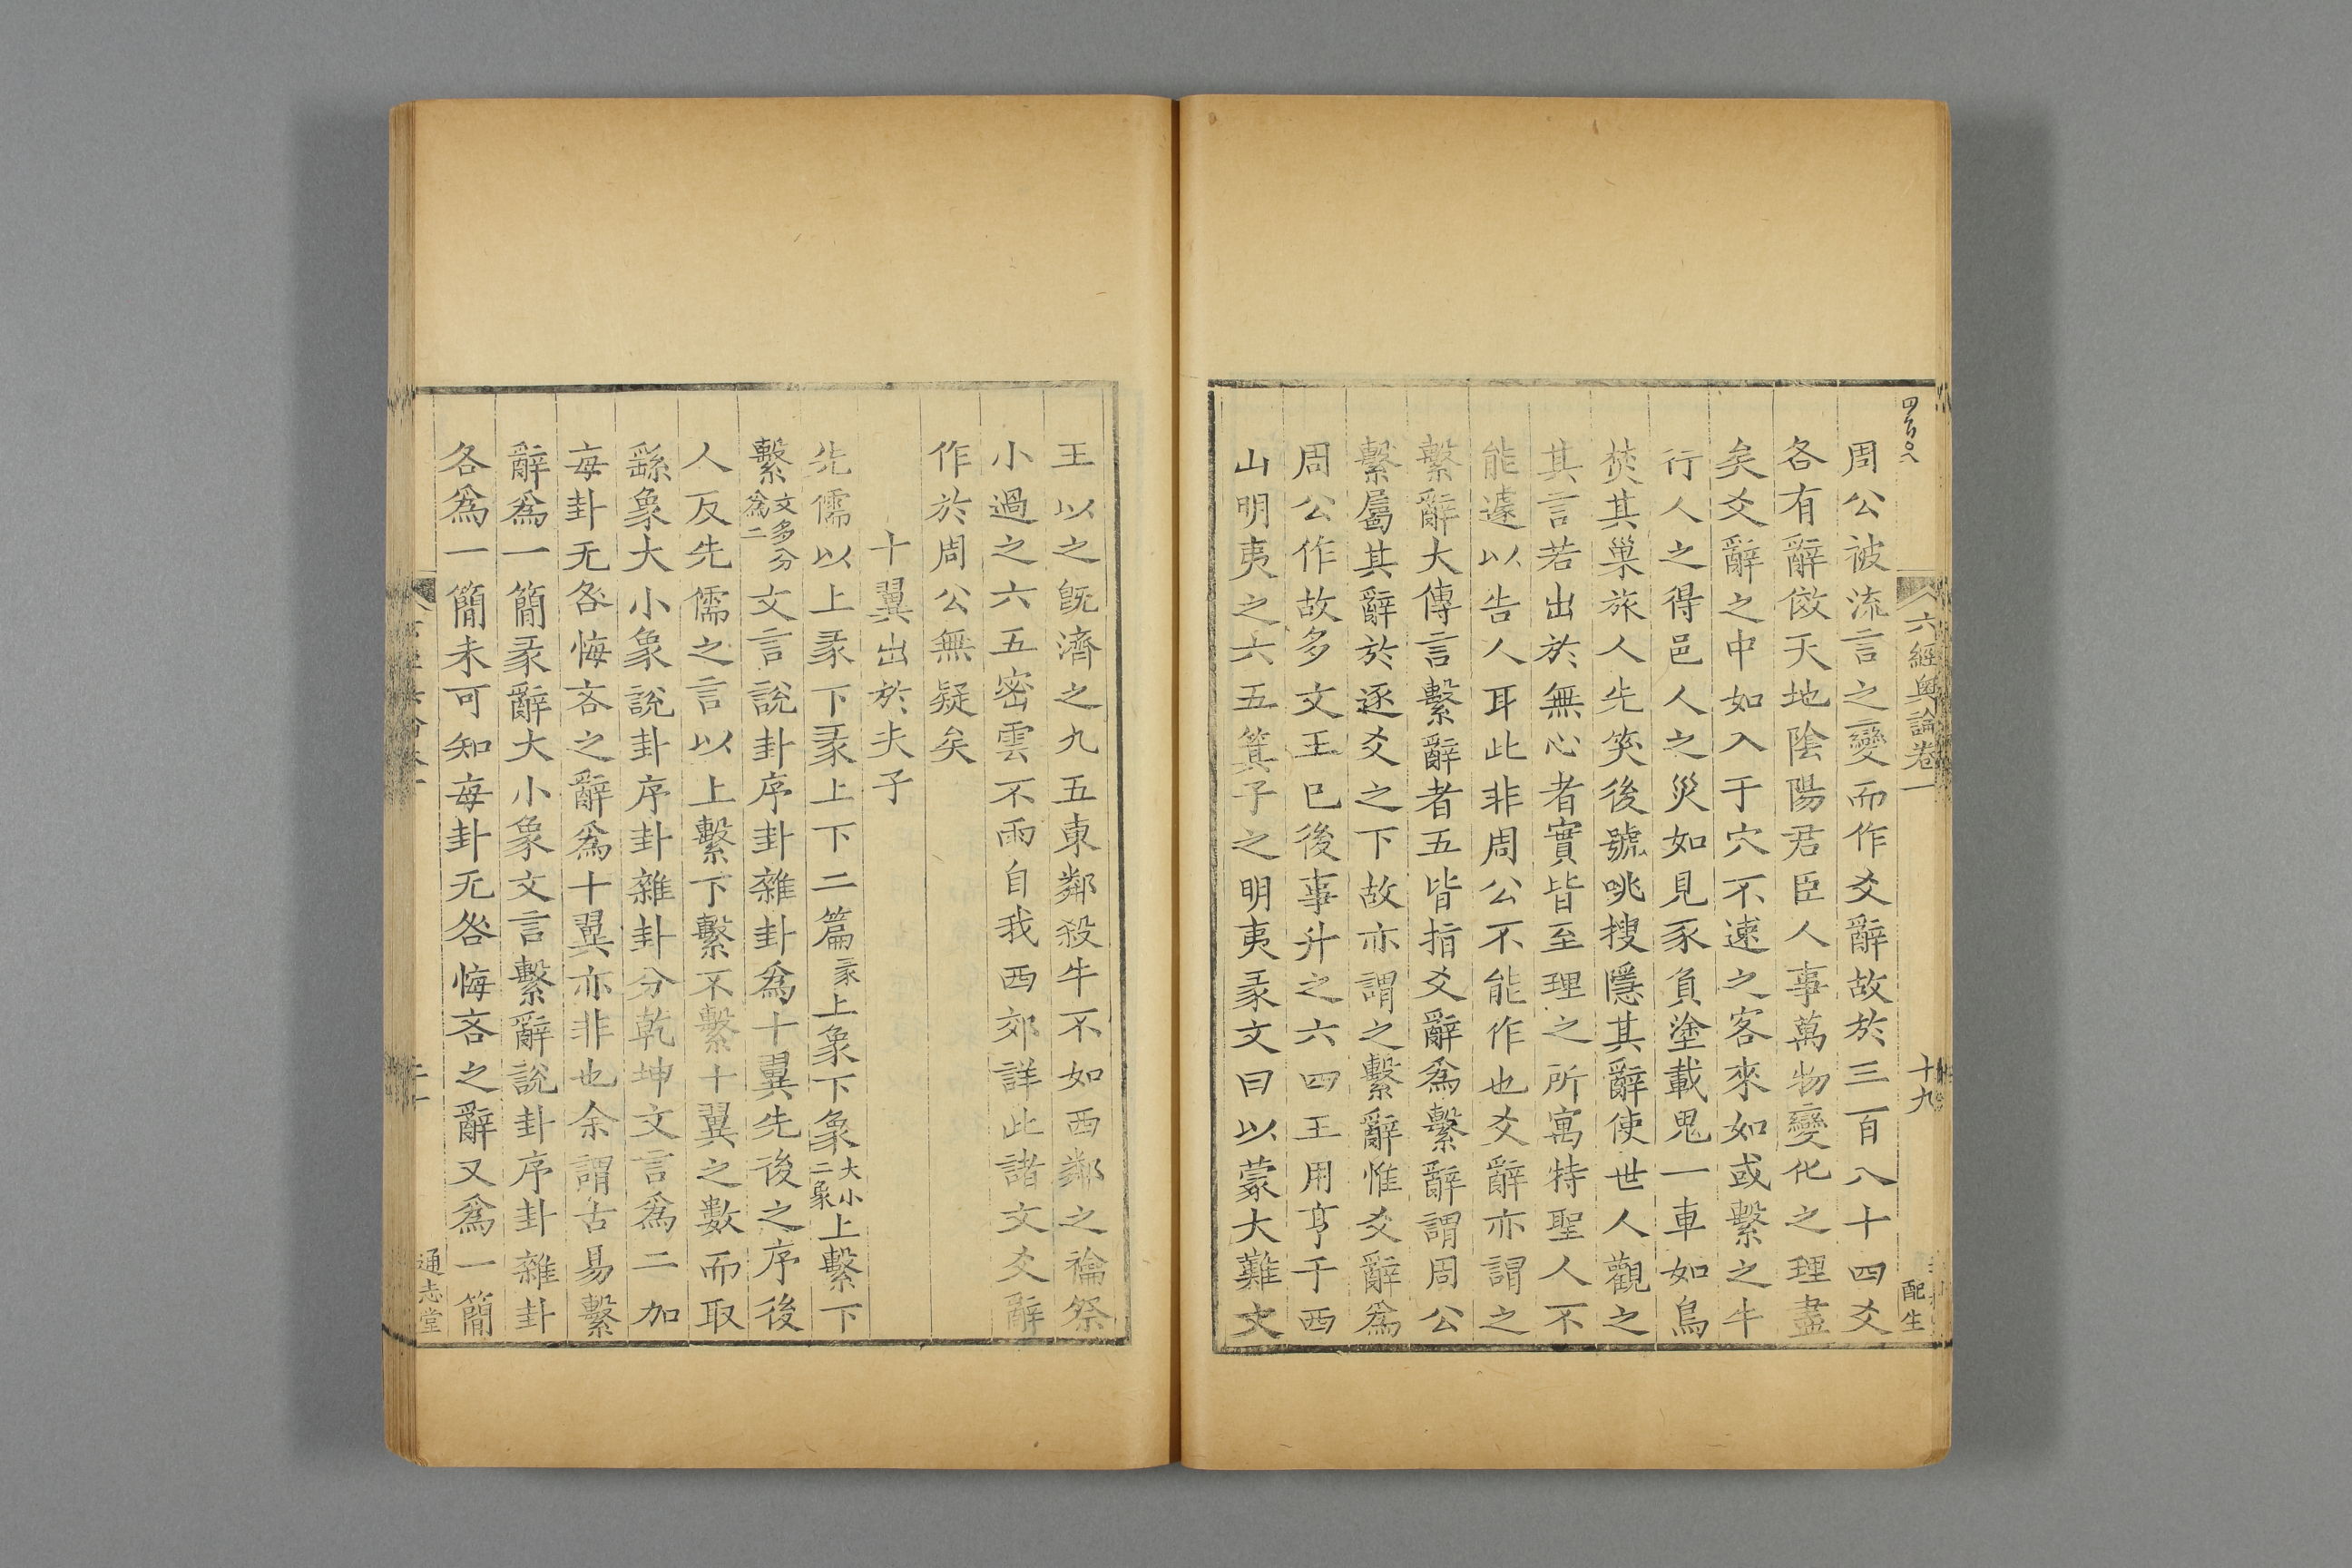 四百〇八
六經奧論卷一
十九
配生
周公被流言之變而作爻辭故於三百八十四爻
各有辭倣天地陰陽君臣人事萬物變化之理盡
矣爻辭之中如入于穴不速之客來如或繫之牛
行人之得邑人之災如見豕負塗載鬼一車如鳥
焚其巢旅人先笑後號咷搜隱其辭使世人觀之
其言若出於無心者實皆至理之所寓特聖人不
能遽以告人耳此非周公不能作也爻辭亦謂之
繫辭大傳言繫辭者五皆指爻辭爲繫辭謂周公
繫屬其辭於逐爻之下故亦謂之繫辭惟爻辭爲
周公作故多文王已後事升之六四王用亨于西
山明夷之六五箕子之明夷彖文曰以蒙大難文
王以之旣濟之九五東鄰殺牛不如西鄰之禴祭
小過之六五密雲不雨自我西郊詳此諸文爻辭
作於周公無疑矣
十翼出於夫子
先儒以上彖下彖上下二篇彖上象下象大小二象上繫下
繫文多分爲二文言說卦序卦雜卦爲十翼先後之序後
人反先儒之言以上繫下繫不繫十翼之數而取
繇象大小象說卦序卦雜卦分乾坤文言爲二加
每卦无咎悔吝之辭爲十翼亦非也余謂古易繫
辭爲一簡彖辭大小象文言繫辭說卦序卦雜卦
各爲一簡未可知每卦无咎悔吝之辭又爲一簡
通志堂